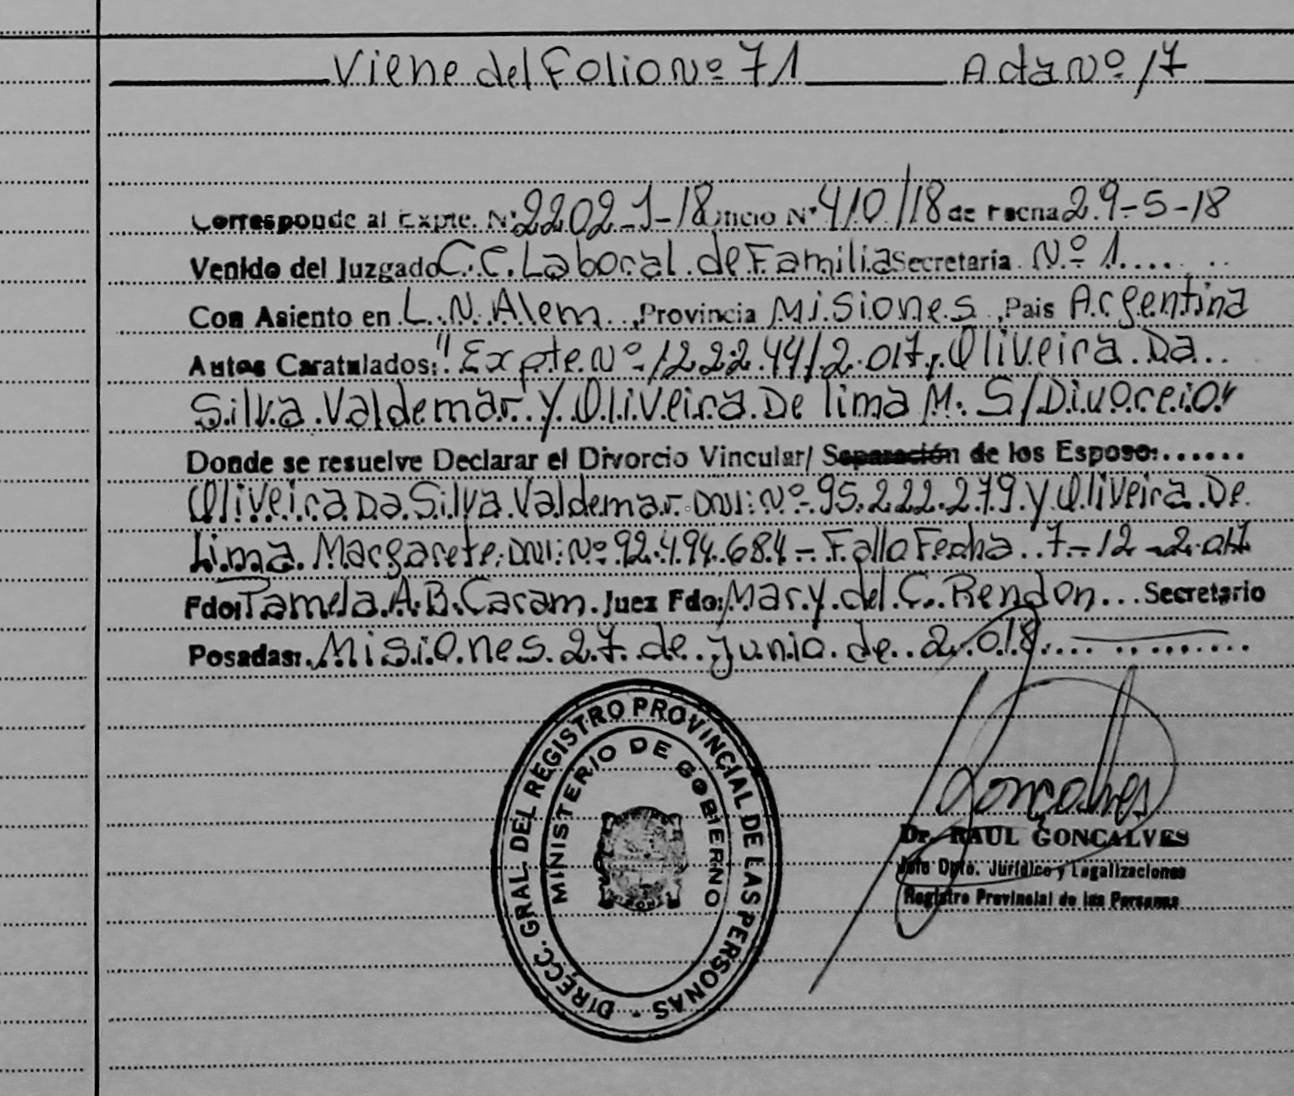 Viene del Folio Nº 71 Acta Nº 17
Corresponde al Expte. Nº 22021-18 Oficio Nº 410/18 de Fecha 29-5-18
Venido del Juzgado C.C. Laboral de Familia Secretaria Nº 1
Con Asiento en L.N. Alem, Provincia Misiones, Pais Argentina
Autos Caratulados: "Expte Nº 122244/2.017, Oliveira Da
Silva Valdemar y Oliveira De lima M. S/Divorceio"
Donde se resuelve Declarar el Divorcio Vincular/ Separación de los Esposo:......
Oliveira Da Silva Valdemar DNI: Nº 95.222.279 y Oliveira De
Lima Margarete DNI: Nº 92.494.684 - Fallo Fecha 7-12-2.017
Fdo: Pamela A.B. Caram Juez Fdo: Mary del C. Rendon... Secretario
Posadas: Misiones 27 de junio de 2.018
DIRECC. GRAL. DEL REGISTRO PROVINCIAL DE LAS PERSONAS
MINISTERIO DE GOBIERNO
Gonçalves
Dr. RAUL GONCALVES
Jefe Dpto. Jurídico y Legalizaciones
Registro Provincial de las Personas